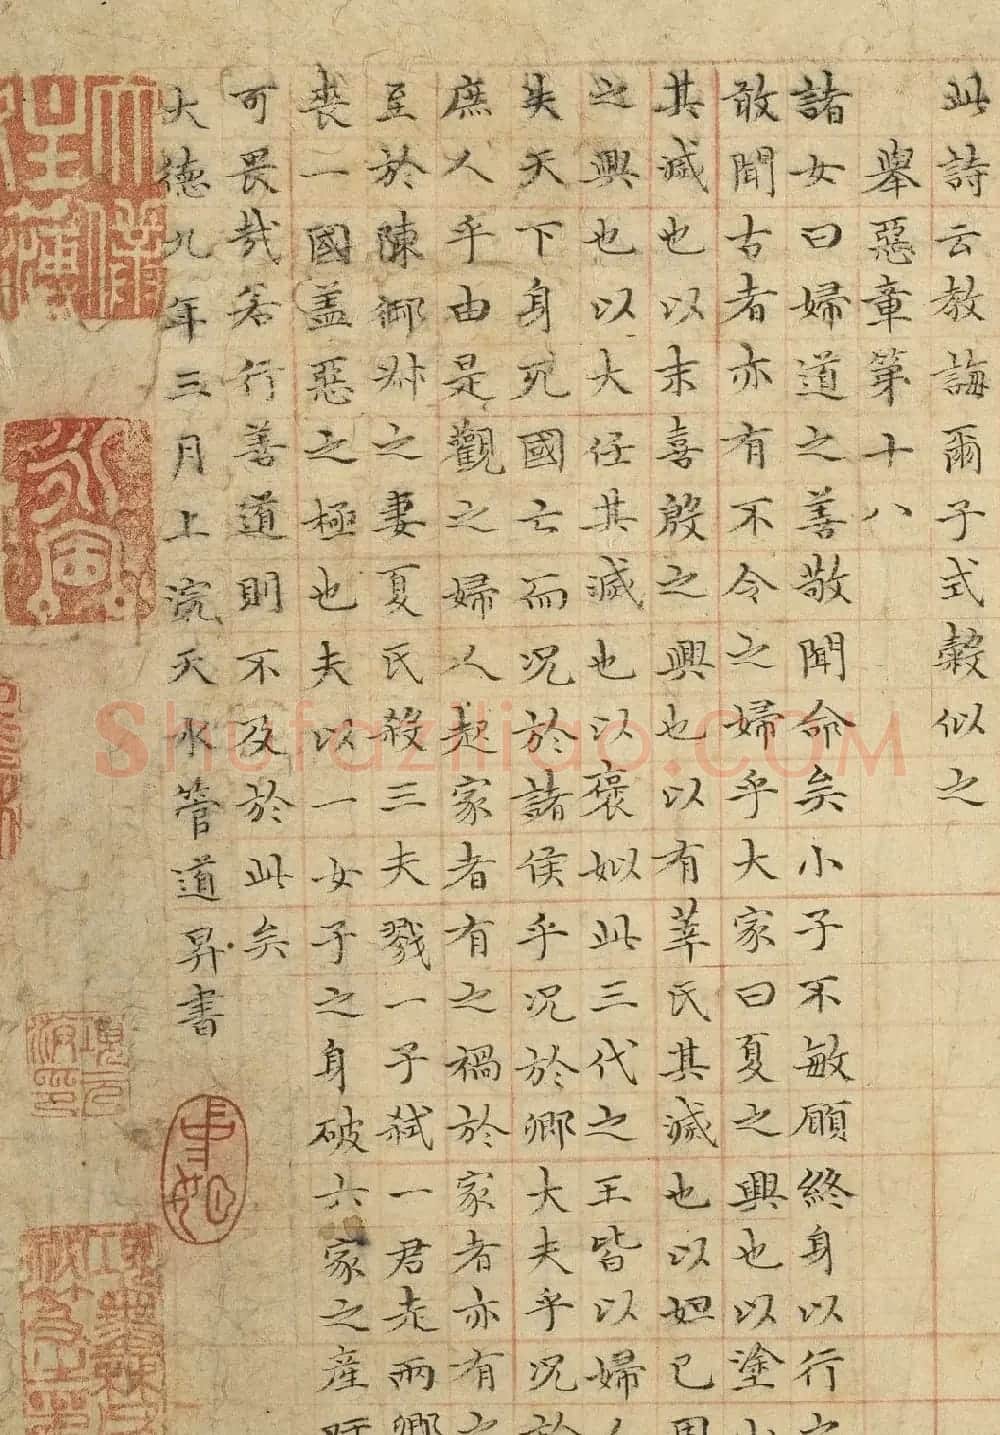 此詩云教誨爾子式榖似之
舉惡章第十八
諸女曰婦道之善敬聞命矣小子不敏願終身以行之
敢聞古者亦有不令之婦乎大家曰夏之興也以塗山
其滅也以末喜殷之興也以有莘氏其滅也以妲己周
之興也以大任其滅也以褒姒此三代之王皆以婦人
失天下身死國亡而况於諸侯乎况於卿大夫乎况於
庶人乎由是觀之婦人起家者有之禍於家者亦有之
至於陳御叔之妻夏氏殺三夫戮一子弒一君走兩卿
喪一國盖惡之極也夫以一女子之身破六家之産吁
可畏哉若行善道則不及於此矣
大德九年三月上澣天水管道昇書
項元
永寅
shufaziliao.com